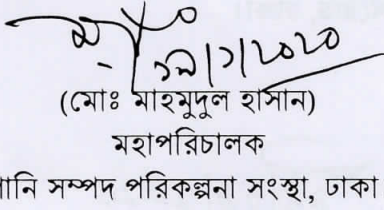 ১৯/৭/২০২০
(মোঃ মাহমুদুল হাসান)
মহাপরিচালক
পানি সম্পদ পরিকল্পনা সংস্থা, ঢাকা